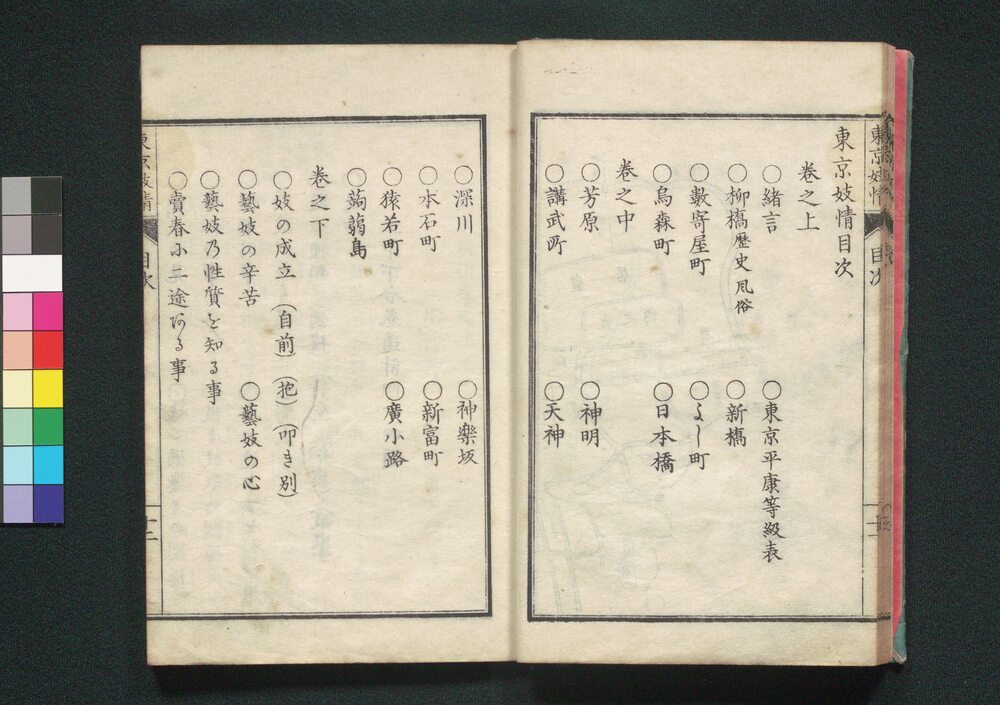 東京妓情
目次
東京妓情目次
卷之上
○緒言　○東京平康等級表
○柳橋歴史風俗　○新橋
○數寄屋町　○よし町
○烏森町　○日本橋
卷之中
○芳原　○神明
○講武所　○天神
○深川　○神樂坂
○本石町　○新富町
○猿若町　○廣小路
○蒟蒻島
卷之下
○妓の成立(自前)(抱)(叩き別)
○藝妓の辛苦　○藝妓の心
○藝妓乃性質を知る事
○賣春小二途ある事
東京妓情
目次